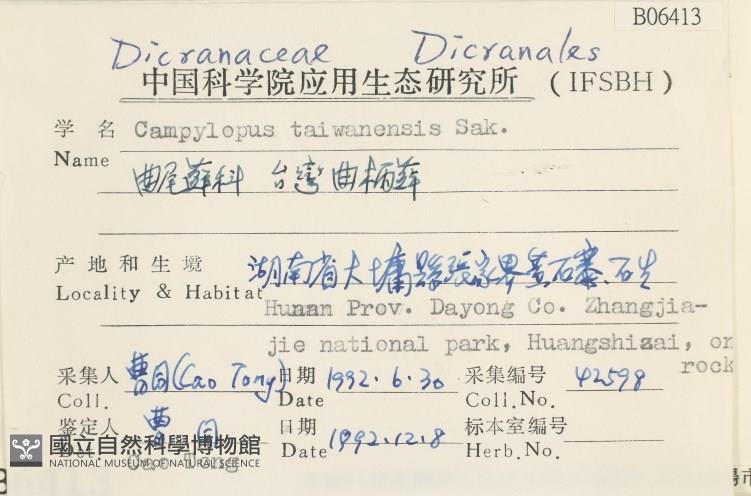 B06413
Dicranaceae Dicranales
中国科学院应用生态研究所 (IFSBH)
学 名 Campylopus taiwanensis Sak.
Name
曲尾蘚科 台灣曲柄蘚
产地和生境 湖南省大墉縣張家界黃石寨.石生
Locality & Habitat Hunan Prov. Dayong Co. Zhangjia-
jie national park, Huangshizai, on
rock
采集人 曹同(Cao Tong) 日期 1992.6.30 采集编号 42598
Coll. Date Coll.No.
鉴定人 曹同 日期 1992.12.8 标本室编号
Det. Cao Tong Date Herb.No.
國立自然科學博物館
NATIONAL MUSEUM OF NATURAL SCIENCE